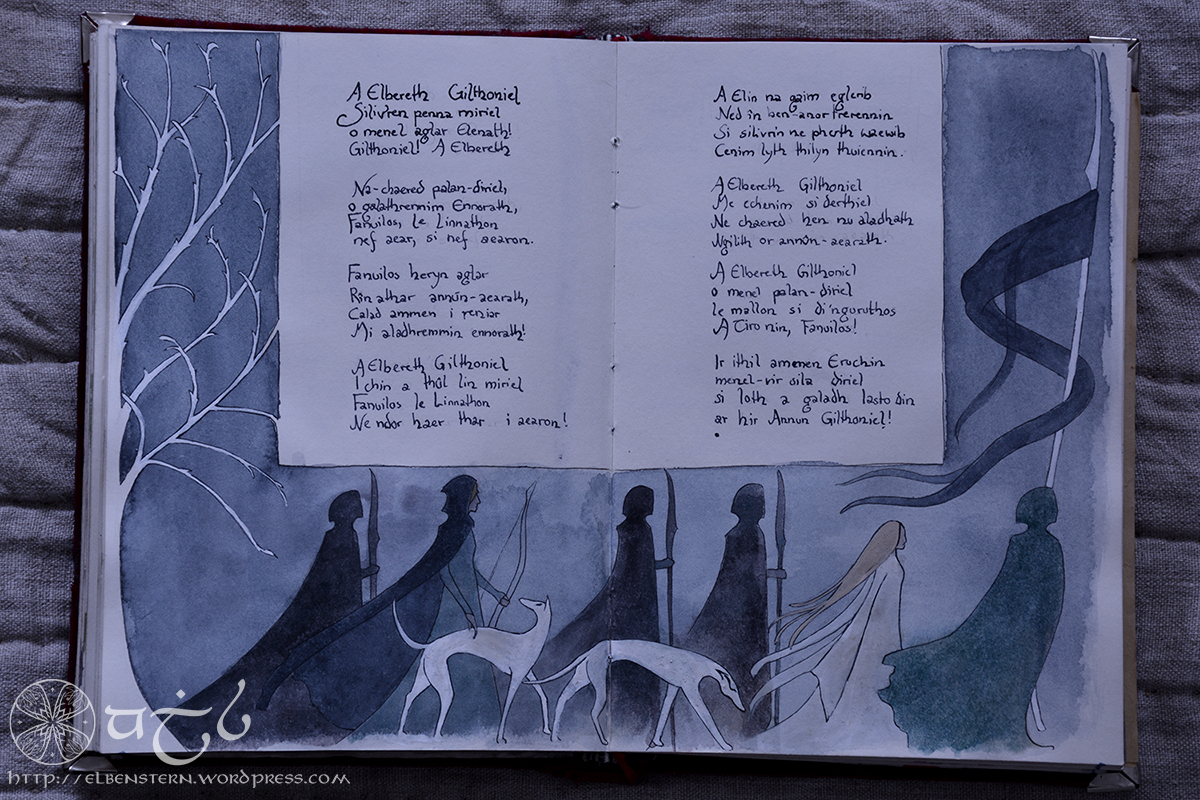 A Elbereth Gilthoniel
Silivren penna miriel
o menel aglar Elenath!
Gilthoniel! A Elbereth
Na-chaered palan-díriel,
o galathremmin Ennorath,
Fanuilos, le Linnathon
nef aear, si nef aearon.
Fanuilos heryn aglar
Rîn athar annún-aearath,
Calad ammen i reniar
Mi aladhremmin ennorath!
A Elbereth Gilthoniel
I chîn a thûl lin miriel
Fanuilos le Linnathon
Ne ndor haer thar i aearon!
A Elin na gaim eglerib
Ned în ben-anor trerennin
Si silivrin ne pherth waewib
Cenim lyth thilyn thuiennin.
A Elbereth Gilthoniel
Me echenim sí derthiel
Ne chaered hen nu aladhath
Ngilith or annún-aearath.
A Elbereth Gilthoniel
o menel palan-díriel
le nallon sí di'nguruthos
A Tiro nin, Fanuilos!
Ir Ithil ammen Eruchîn
menel-vîr síla díriel
si loth a galadh lasto dîn
ar hîr Annûn Gilthoniel!
http://elbenstern.wordpress.com